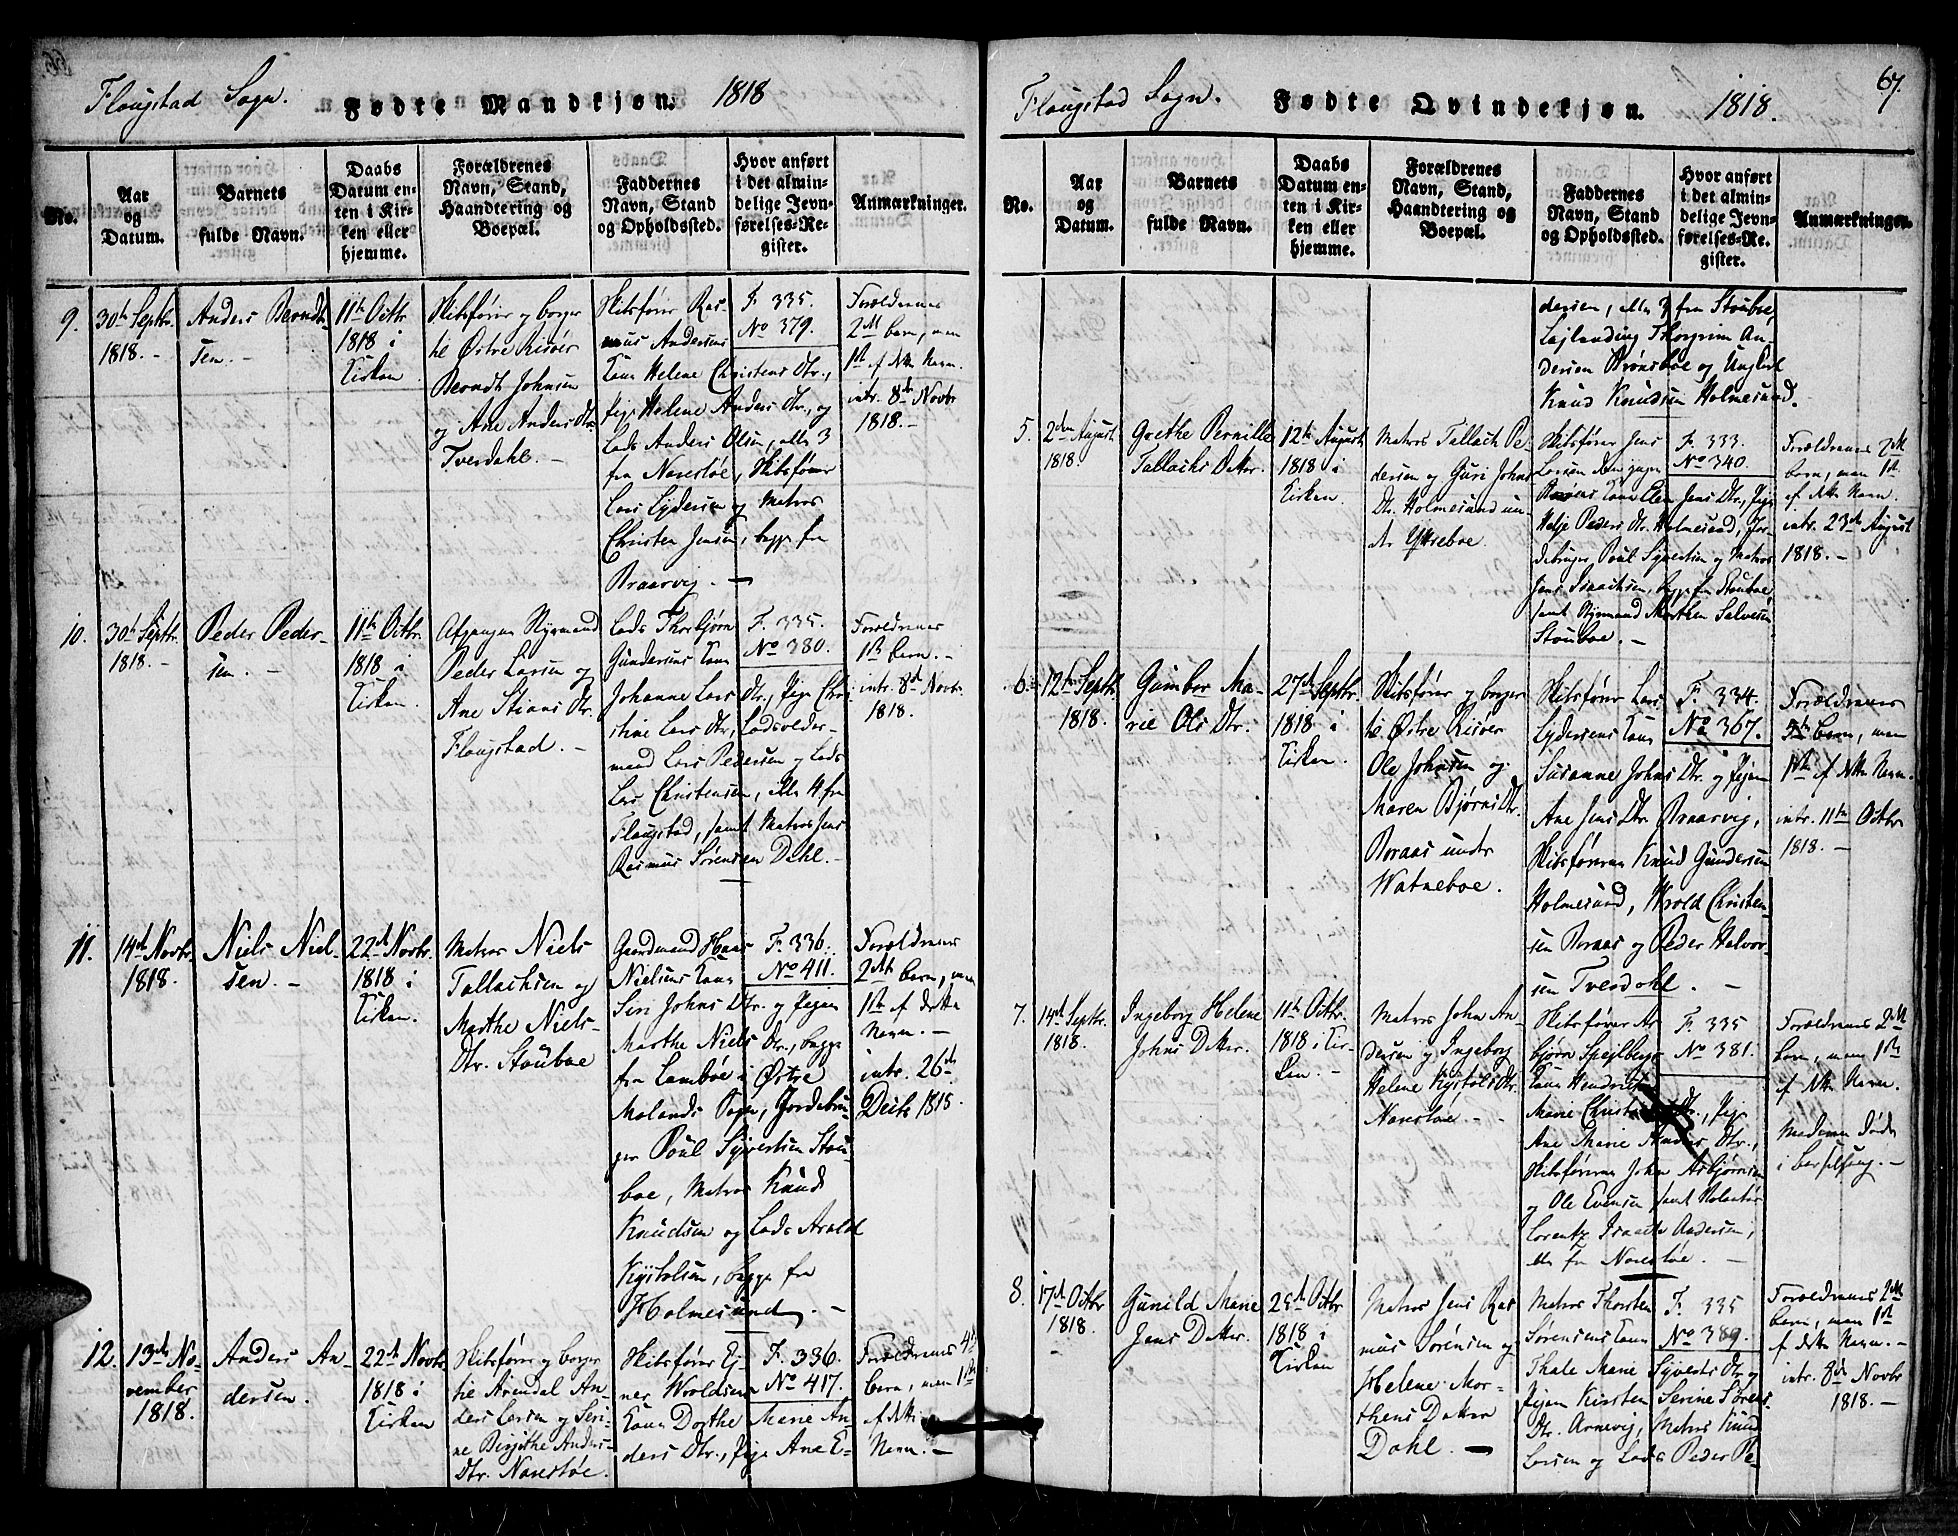 Flougstad Sogn. Fødte Mandkjøn. 1818
No.
Aar
og
Datum.
Barnets
fulde Navn.
Daabs
Datum en-
ten i Kir-
ken eller
hjemme.
Forældrenes
Navn, Stand,
Haandtering og
Boepæl.
Faddernes
Navn, Stand
og Opholdssted.
Hvor anført
i det almin-
delige Jevn-
førelses-Re-
gister.
Anmærkninger.
9.
30th Septbr.
1818.
Anders Berndt-
sen.
11th Octbr
1818 i
Kirken
Skibsfører og borger
til Østre Risöer
Berndt Johnsen
og Ane Anders Dtr.
Tverdahl.
Skibsfører Ras-
mus Andersens
Kone Helene Christens Dtr.,
Pige Helene Anders Dtr., og
Lods Anders Olsen, alle 3
fra Narestøe, Skibsfører
Lars Lydersen og Matros
Christen Jensen, begge fra
Braarvig.
F. 335.
No 379.
Forældrenes
2det barn, men
1ste af dette Navn.
intr. 8de Novbr
1818.
10.
30th Septbr.
1818.
Peder Peder-
sen.
11th Octbr.
1818 i
Kirken.
Afgangen Styrmand
Peder Larsen og
Ane Stians Dtr.
Flougstad.
Lods Thorbjørn
Gundersens Kone
Johanne Lars Dtr., Pige Chri-
stine Lars Dtr., Lodsolder-
mand Lars Pedersen og Lods
Lars Christensen, alle 4 fra
Flougstad, samt Matros Jens
Rasmus Sørensen Dahl.
F. 335.
No 380.
Forældrenes
1ste barn.
intr. 8de Novbr.
1818.
11.
14de Novbr.
1818.
Niels Niel-
sen.
22de Novbr.
1818 i
Kirken.
Matros Niels
Tallachsen og
Marthe Niels-
Dtr. Stouboe
Gaardmand Hans
Nielsens Kone
Siri Johns Dtr. og Pigen
Marthe Niels Dtr., begge
fra Lamboe i Østre
Molands Sogn, Jordebru-
ger Poul Syvertsen Stou-
boe, Matros Knud
Knudsen og Lods Arold
Kystolsen, begge fra
Holmesund.
F. 336.
No 411.
Forældrenes
2det barn, men
1ste af dette
Navn.
intr. 26de
Decbr 1818.
12.
13de No-
vember
1818.
Anders An-
dersen.
22de Novbr
1818 i
Kirken
Skibsfører og borger
til Arendal An-
ders Larsen og Seri-
ne Birgithe Anders-
Dtr. Narestøe.
Skibsfører Ej-
ner Wroldsens
Kone Dorthe Marie An-
ders Dtr., Pige Ane E-
F. 336.
No 417.
Forældrenes 4de
barn, men 1ste
af dette
Navn.
67.
Flougstad Sogn. Fødte Qvindekjøn. 1818.
No.
Aar
og
Datum.
Barnets
fulde Navn.
Daabs
Datum en-
ten i Kir-
ken eller
hjemme.
Forældrenes
Navn, Stand,
Haandtering og
Boepæl.
Faddernes
Navn, Stand
og Opholdssted.
Hvor anført
i det almin-
delige Jevn-
førelses-Re-
gister.
Anmærkninger.
dersen, alle 3 fra Stouboe,
Thorgrim An-
dersen Brønsboe og Ungkarl
Knud Knudsen Holmesund.
5.
2den August
1818.
Grethe Pernille
Tallachs Datter.
12te August
1818 i
Kirken.
Matros Tallach Pe-
dersen og Guri Johns
Dtr. Holmesund un-
der Ytreboe.
Skibsfører Jens
Larsen
Kone Elen Jens Dtr., Pige
Helje Peders Dtr. Holmesund, Jor-
debruger Poul Syvertsen og Matros
Jens Isaachsen, begge fra Stouboe,
samt Styrmand Morthen Salvesen
Stouboe.
F. 333.
No 340.
Forældrenes 2det
barn, men 1ste
af dette Navn.
intr. 23de August
1818.
6.
12te Septbr
1818.
Gumbor Ma-
rie Ols Dtr.
27de Septbr.
1818 i
Kirken.
Skibsfører og borger
til Østre Risöer
Ole Johnsen og
Maren Bjørns Dtr.
Boraas under
Watneboe.
Skibsfører Lars
Lydersens Kone
Susanne Johns Dtr. og Pigen
Ane Jens Dtr. Braarvig,
Skibsførerne Knud Gundersen
Holmesund, Wrold Christen-
sen Boraas og Peder Halvor-
sen Tverdahl.
F. 334.
No 367.
Forældrenes
5te barn, men
1ste af dette Navn.
intr. 11te Octbr
1818.
7.
14de Septbr.
1818.
Ingeborg Helene
Johns Datter.
11th Octbr.
1818 i Kir-
ken.
Matros John An-
dersen og Ingeborg
Helene Kystols Dtr.
Narestøe.
Skibsfører As-
bjørn Spejlbergs
Kone Hendrikke
Marie Christens Dtr., Pige
Ane Marie Anders Dtr.,
Skibsførerne John Asbjørnsen
og Ole Evensen samt
Lorentz Isaach Andersen,
alle fra Narestøe.
F. 335
No 381.
Forældrenes 2det
barn, men 1ste
af dette Navn.
Moderen døde
i barselseng.
8.
17de Octbr
1818.
Gunild Marie
Jens Datter.
25de Octbr
1818 i
Kirken
Matros Jens Ras-
mus Sørensen og
Helene Mor-
thens Datter
Dahl.
Matros Thorsten
Sørensens Kone
Thale Marie Syverts Dtr. og
Pigen Kirsten Serine Sørens
Dtr. Arnevig, Matros Knud
Larsen og Lods Peder Pe-
F. 335
No 389.
Forældrenes 2det
barn, men 1ste
af dette Navn.
intr. 8de Novbr
1818.